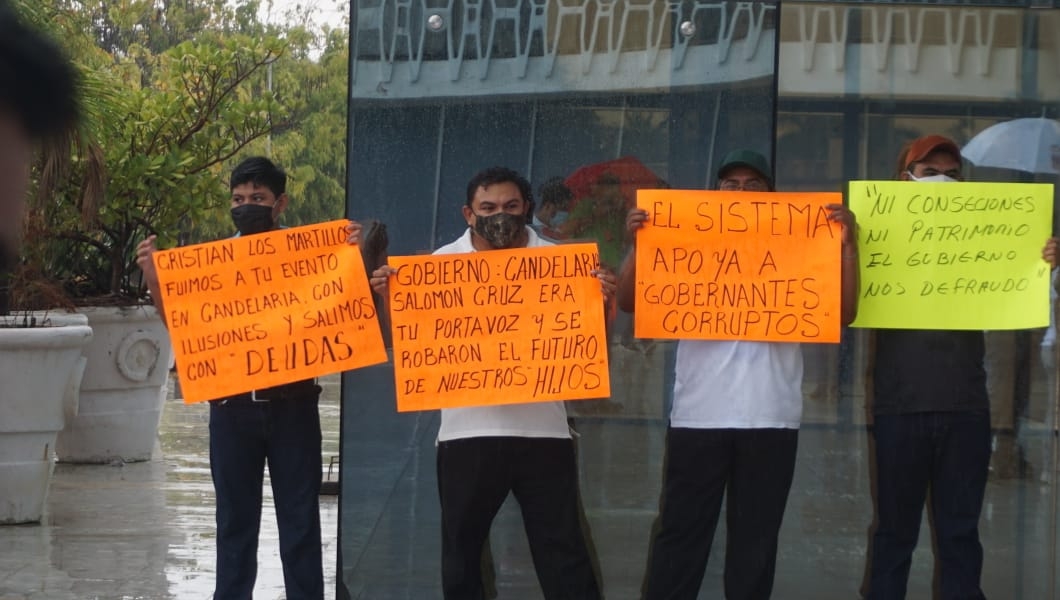 CRISTIAN LOS MARTILLOS
FUIMOS A TU EVENTO
EN CANDELARIA. CON
ILUSIONES Y SALIMOS
CON "DEUDAS"
GOBIERNO: CANDELARIA
SALOMON CRUZ ERA
TU PORTAVOZ Y SE
ROBARON EL FUTURO
DE NUESTROS "HIJOS"
EL SISTEMA
APOYA A
"GOBERNANTES
CORRUPTOS"
"NI CONSECIONES
NI PATRIMONIO
EL GOBIERNO
NOS DEFRAUDO"